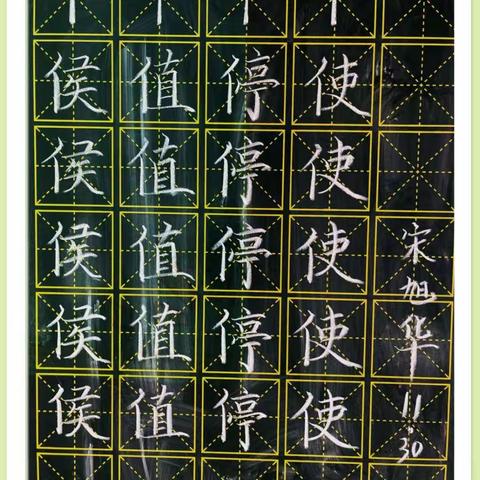 侯值停使
侯值停使
侯值停使
侯值停使
侯值停使
宋旭华
11.30